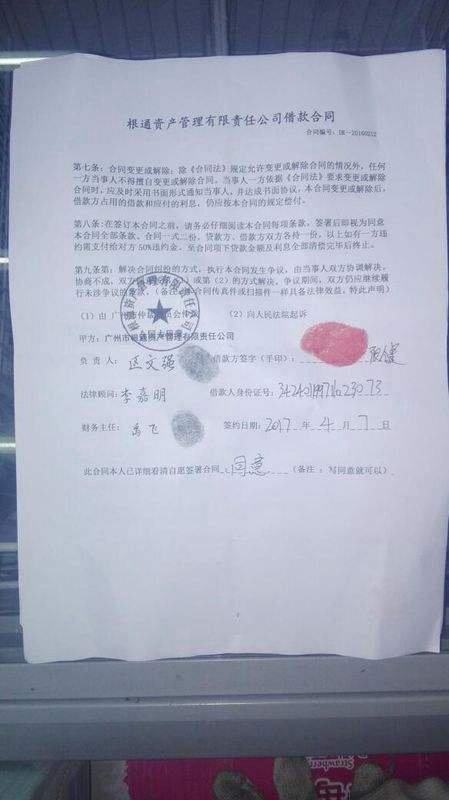 根通资产管理有限责任公司借款合同
合同编号：DK--20160212
第七条：合同变更或解除：除《合同法》规定允许变更或解除合同的情况外，任何
一方当事人不得擅自变更或解除合同。当事人一方依据《合同法》要求变更或解除
合同时，应及时采用书面形式通知当事人，并达成书面协议，本合同变更或解除后，
借款方占用的借款和应付的利息，仍应按本合同的规定偿付。
第八条：在签订本合同之前，请务必仔细阅读本合同每项条款，签署后即视为同意
本合同全部条款。合同一式二份，贷款方、借款方双方各持一份，以上如有一方违
约需支付给对方 50%违约金。至合同项下贷款金额及利息全部清偿完毕后终止。
第九条第：解决合同纠纷的方式，执行本合同发生争议，由当事人双方协调解决，
协商不成，双方 或第（2）的方式解决，争议期间，双方仍应继续履
行未涉争议的条款，（备注： 合同传真件或扫描件一样具备法律效益，特此声明）
（1）由广州 仲 员会仲 （2）向人民法院起诉
甲方：广州市根通资产管理有限责任公司
负 责 人： 区文强 借款方签字（手印）：
法律顾问：李嘉明 借款人身份证号：
财务主任： 岳飞 签约日期：2017 年 4 月 7 日
此合同本人已详细看清自愿签署合同：同意 （备注 ：写同意就可以）